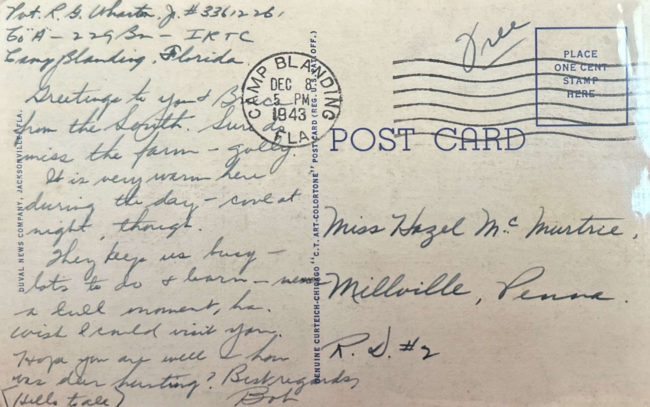 Pvt. R. G. Wharton Jr. #3361226,
Co "A" - 229 Bn - IRTC
Camp Blanding, Florida.
Greetings to you & Bruce
from the South. Sure do
miss the farm - golly.
It is very warm here
during the day - cool at
night, though.
They keep us busy -
lots to do & learn - never
a lull moment, ha.
Wish I could visit you.
Hope you are well & how
was deer hunting? Best regards,
(Hello to all) Bob
DUVAL NEWS COMPANY, JACKSONVILLE, FLA.
CAMP BLANDING
DEC 8
5 PM
1943
FLA.
GENUINE CURTEICH-CHICAGO "C.T. ART-COLORTONE" POST CARD (REG. U.S. PAT. OFF.)
Free
PLACE
ONE CENT
STAMP
HERE
POST CARD
Miss Hazel McMurtrie,
Millville, Penna.
R. D. #2